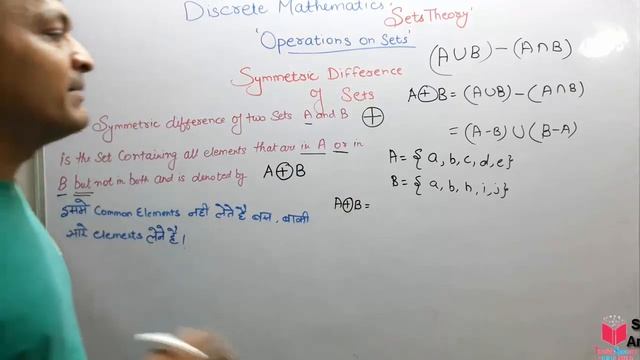 Discrete Mathematics.
'Sets Theory'
'Operations on Sets'
Symmetric Difference
of Sets
Symmetric difference of two Sets A and B ⊕
is the Set Containing all elements that are in A or in
B but not in both and is denoted by A⊕B
इसमे Common Elements नही लेते है बस, बाकी
सारे elements लेते है।
(A∪B) − (A∩B)
A⊕B = (A∪B) − (A∩B)
= (A−B) ∪ (B−A)
A = {a, b, c, d, e}
B = {a, b, h, i, j}
A⊕B =